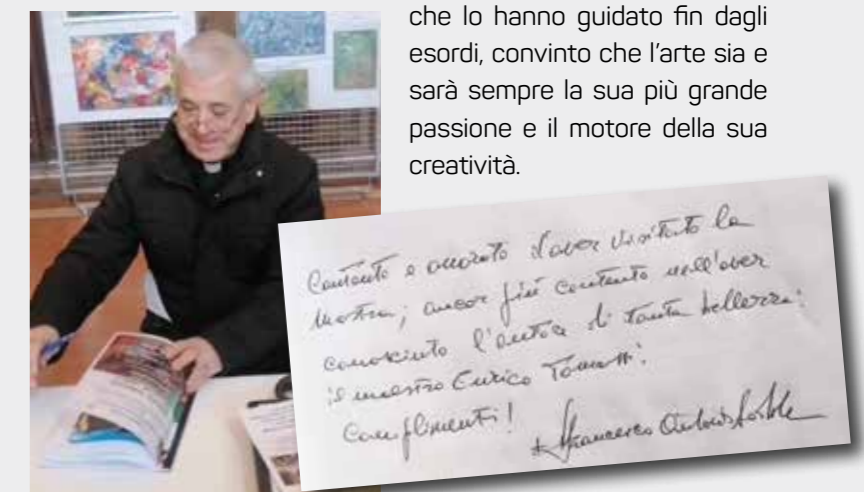 che lo hanno guidato fin dagli
esordi, convinto che l'arte sia e
sarà sempre la sua più grande
passione e il motore della sua
creatività.
Contento e onorato d'aver visitato la
mostra; ancor più contento nell'aver
conosciuto l'autore di tanta bellezza:
il maestro Enrico
Complimenti!
+ Francesco Antonio